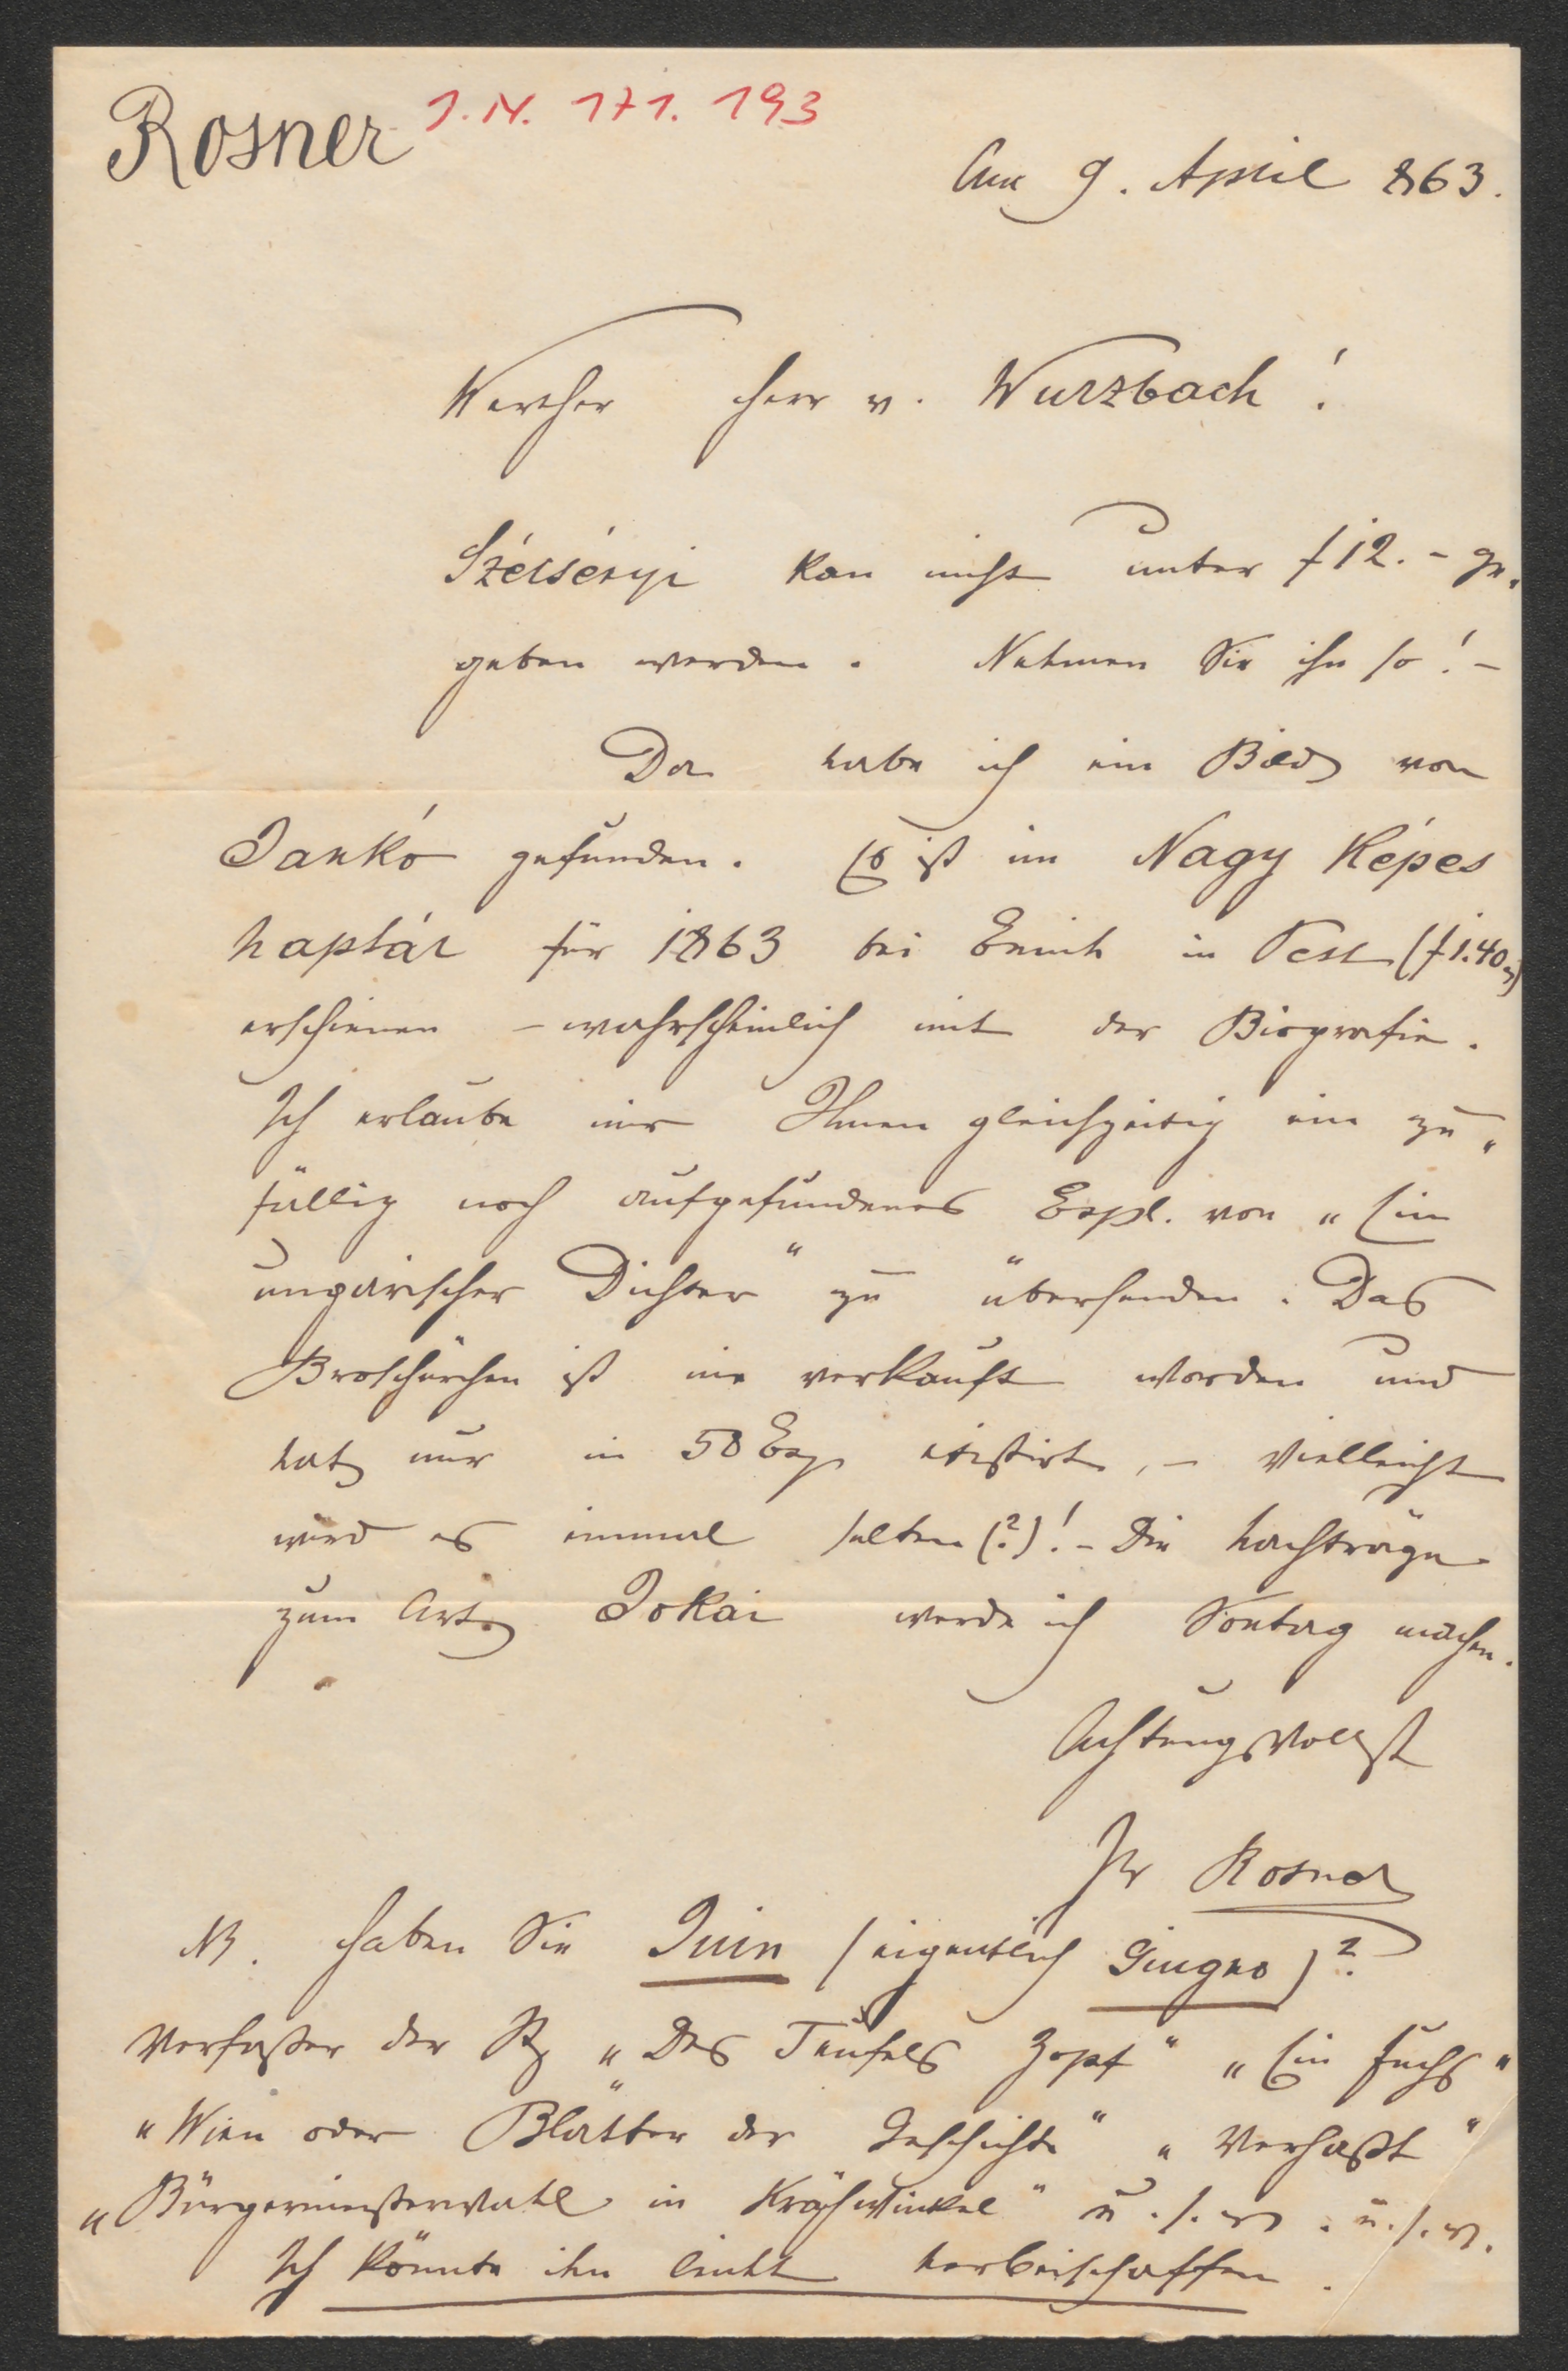 Rosner J. N. 171. 193
Am 9. April 863.
Werther Herr v. Wurzbach!
Szécsényi kan nicht unter f 12. - ge„
geben werden. Nehmen Sie ihn so! -
Da habe ich ein Bild von
Jankó gefunden. Es ist im Nagy Képes
naptár für 1863 bei Emich in Pest (f 1.40
erschienen - wahrscheinlich mit der Biografie.
Ich erlaube mir Ihnen gleichzeitig ein zu„
fällig noch aufgefundenes Expl. von „Ein
ungarischer Dichter“ zu übersenden. Das
Broschürchen ist nie verkauft worden und
hat nur in 50 Exp existirt, - vielleicht
wird es einmal selten (?)! - Die Nachträge
zum Art. Jokai werde ich Sontag machen.
Achtungsvollst
Ihr Rosner
NB. Haben Sie Juin (eigentlich Giugno)?
Verfasser der St „Des Teufels Zopf“ „Ein Fuchs“
„Wien oder Blätter der Geschichte“ „Verhaßt“
„Bürgermeisterwahl in Krähwinkel“ u. s. w. u. s. w.
Ich könnte ihn leicht herbeischaffen.